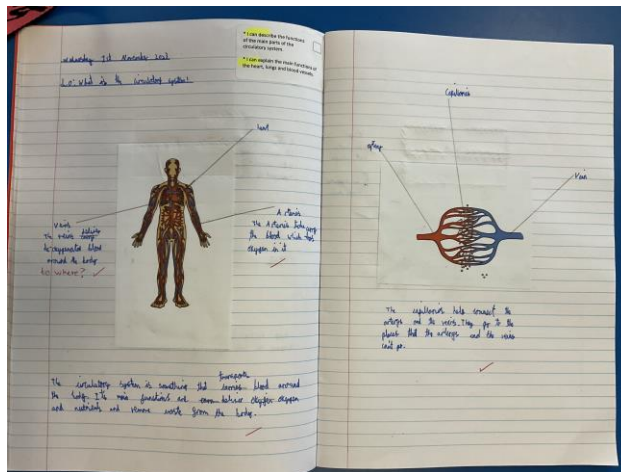 Wednesday 1st November
LO: What is the circulatory system?
* I can describe the functions
of the main parts of the
circulatory system.
* I can explain the main functions of
the heart, lungs and blood vessels.
heart
Veins
The veins
deoxygenated blood
around the body
to where?
Arteries
The Arteries help carry
the blood which has
oxygen in it
transports
The circulatory system is something that carries blood around
the body. Its main functions are deliver oxygen
and nutrients and remove waste from the body.
Capillaries
artery
Vein
The capillaries help connect the
arterys and the veins. They go to the
places that the arterys and the veins
can't go.